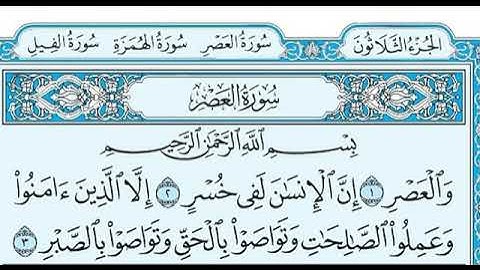 الجزء الثلاثون
سورة العصر سورة الهمزة سورة الفيل
سُورَةُ الْعَصْرِ
بِسْمِ اللَّهِ الرَّحْمَٰنِ الرَّحِيمِ
وَالْعَصْرِ ١ إِنَّ الْإِنسَانَ لَفِي خُسْرٍ ٢ إِلَّا الَّذِينَ ءَامَنُوا
وَعَمِلُوا الصَّالِحَاتِ وَتَوَاصَوْا بِالْحَقِّ وَتَوَاصَوْا بِالصَّبْرِ ٣